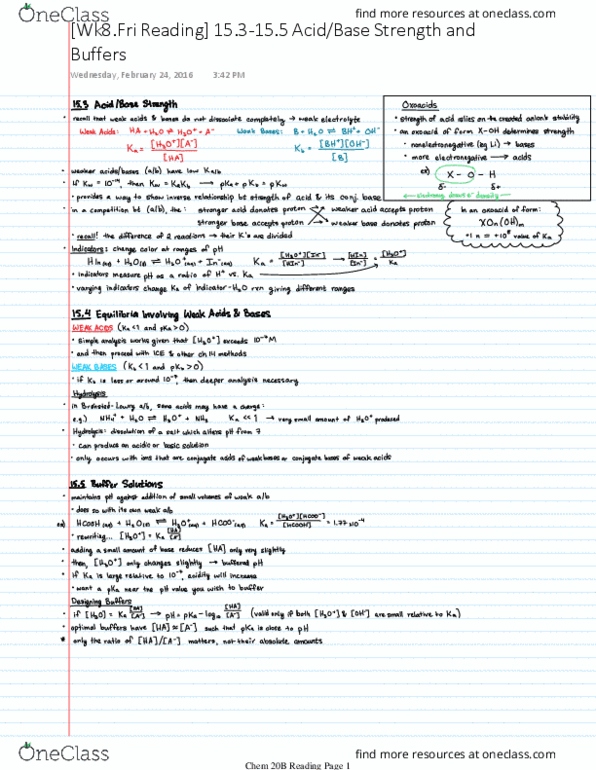 OneClass
find more resources at oneclass.com
[Wk8.Fri Reading] 15.3-15.5 Acid/Base Strength and
Buffers
Wednesday, February 24, 2016 3:42 PM
15.3 Acid/Base Strength
• recall that weak acids & bases do not dissociate completely → weak electrolyte
Weak Acids: HA + H₂O ⇌ H₃O⁺ + A⁻ Weak Bases: B + H₂O ⇌ BH⁺ + OH⁻
Ka = [H₃O⁺][A⁻] / [HA] Kb = [BH⁺][OH⁻] / [B]
• weaker acids/bases (a/b) have low Ka/b
• If Kw = 10⁻¹⁴, then Kw = KaKb → pKa + pKb = pKw
• provides a way to show inverse relationship bt strength of acid & its conj. base
• in a competition bt (a/b), the: stronger acid donates proton weaker acid accepts proton
stronger base accepts proton weaker base donates proton
• recall: the difference of 2 reactions → their K's are divided
• Indicators: change color at ranges of pH
HIn(aq) + H₂O(l) ⇌ H₃O⁺(aq) + In⁻(aq) Ka = [H₃O⁺][In⁻] / [HIn] → [HIn] / [In⁻] = [H₃O⁺] / Ka
• indicators measure pH as a ratio of H⁺ vs. Ka
• varying indicators change Ka of indicator-H₂O rxn giving different ranges
Oxoacids
• strength of acid relies on the created anion's stability
• an oxoacid of form X-OH determines strength
• nonelectronegative (eg Li) → bases
• more electronegative → acids
ex) X - O - H
δ- δ+
← electroneg. draws e⁻ density
In an oxoacid of form:
XOn(OH)m
+1 n = +10⁵ value of Ka
15.4 Equilibria Involving Weak Acids & Bases
WEAK ACIDS (Ka < 1 and pKa > 0)
• Simple analysis works given that [H₃O⁺] exceeds 10⁻⁷ M
• and then proceed with ICE & other ch 14 methods
WEAK BASES (Kb < 1 and pKb > 0)
• if Kb is less or around 10⁻⁷, then deeper analysis necessary
Hydrolysis
• in Brønsted-Lowry a/b, some acids may have a charge:
e.g.) NH₄⁺ + H₂O ⇌ H₃O⁺ + NH₃ Ka << 1 → very small amount of H₃O⁺ produced
• Hydrolysis: dissolution of a salt which alters pH from 7
• can produce an acidic or basic solution
• only occurs with ions that are conjugate acids of weak bases or conjugate bases of weak acids
15.5 Buffer Solutions
• maintains pH against addition of small volumes of weak a/b
• does so with its own weak a/b
ex) HCOOH(aq) + H₂O(l) ⇌ H₃O⁺(aq) + HCOO⁻(aq) Ka = [H₃O⁺][HCOO⁻] / [HCOOH] = 1.77 x10⁻⁴
• rewriting... [H₃O⁺] = Ka [HA] / [A⁻]
• adding a small amount of base reduces [HA] only very slightly
• then, [H₃O⁺] only changes slightly → buffered pH
• If Ka is large relative to 10⁻⁷, acidity will increase
• want a pKa near the pH value you wish to buffer
Designing Buffers
• if [H₃O] = Ka [HA] / [A⁻] → pH = pKa - log₁₀ [HA] / [A⁻] (valid only if both [H₃O⁺] & [OH⁻] are small relative to Ka)
• optimal buffers have [HA] ≈ [A⁻] such that pKa is close to pH
* only the ratio of [HA]/[A⁻] matters, not their absolute amounts
OneClass
find more resources at oneclass.com
Chem 20B Reading Page 1